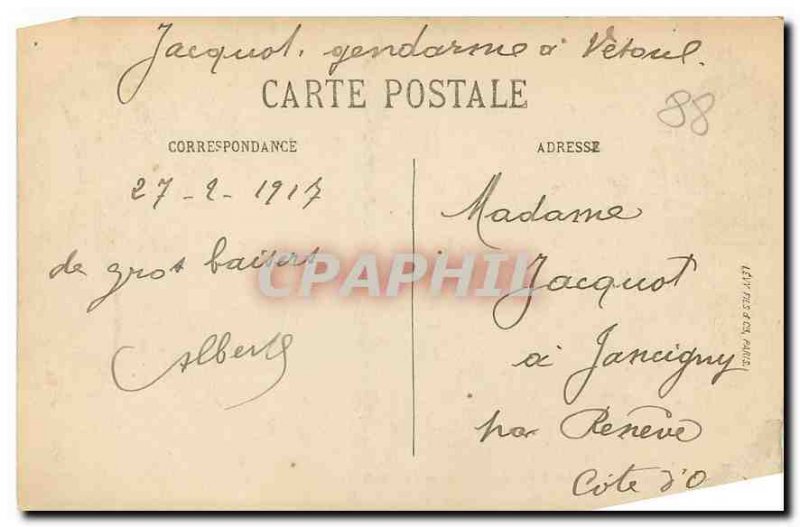 Jacquot, gendarme à Vesoul.
CARTE POSTALE
88
CORRESPONDANCE
ADRESSE
27-2-1917
de gros baisers
Albert
Madame
Jacquot
à Jancigny
par Renève
Côte d'O
LÉVY FILS & CIE, PARIS.
CPAPHIL